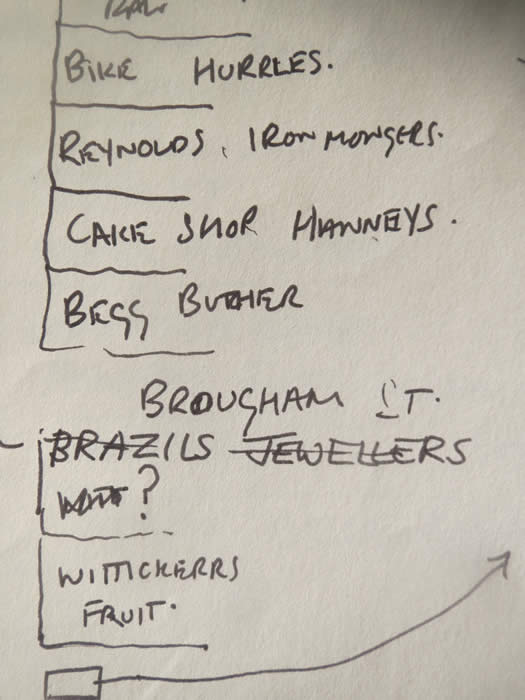 BIKE HURRLES.
REYNOLDS, IRONMONGERS.
CAKE SHOP HANNEYS.
BEGG BUTHER
BROUGHAM ST.
BRAZILS JEWELLERS
?
WITTICKERRS
FRUIT.